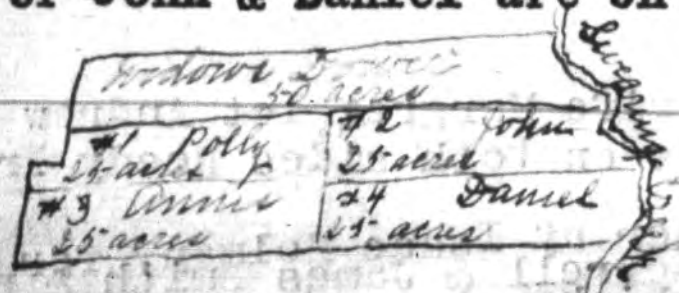 of John & Daniel are on
Widows Dower
50 acres
#1 Polly
25 acres
#2 John
25 acres
#3 Annie
25 acres
#4 Daniel
25 acres
Swearing Creek